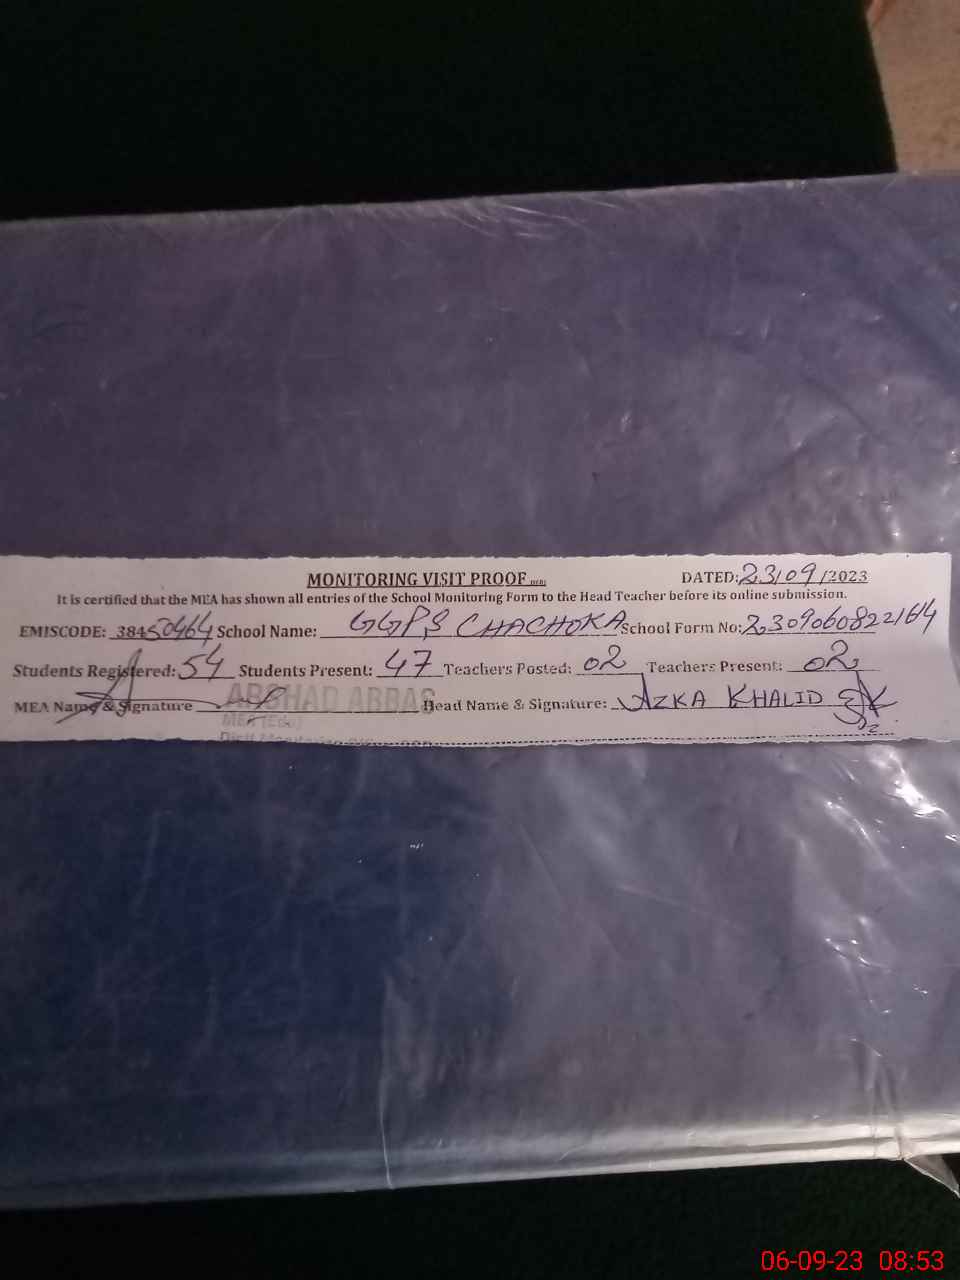 MONITORING VISIT PROOF DATED: 23/09/2023
It is certified that the MEA has shown all entries of the School Monitoring Form to the Head Teacher before its online submission.
EMISCODE: 38450464 School Name: GGPS CHACHOKA School Form No: 2309060822164
Students Registered: 54 Students Present: 47 Teachers Posted: 02 Teachers Present: 02
MEA Name & Signature ARSHAD ABBAS Head Name & Signature: AZKA KHALID
MEA (Edu)
06-09-23 08:53